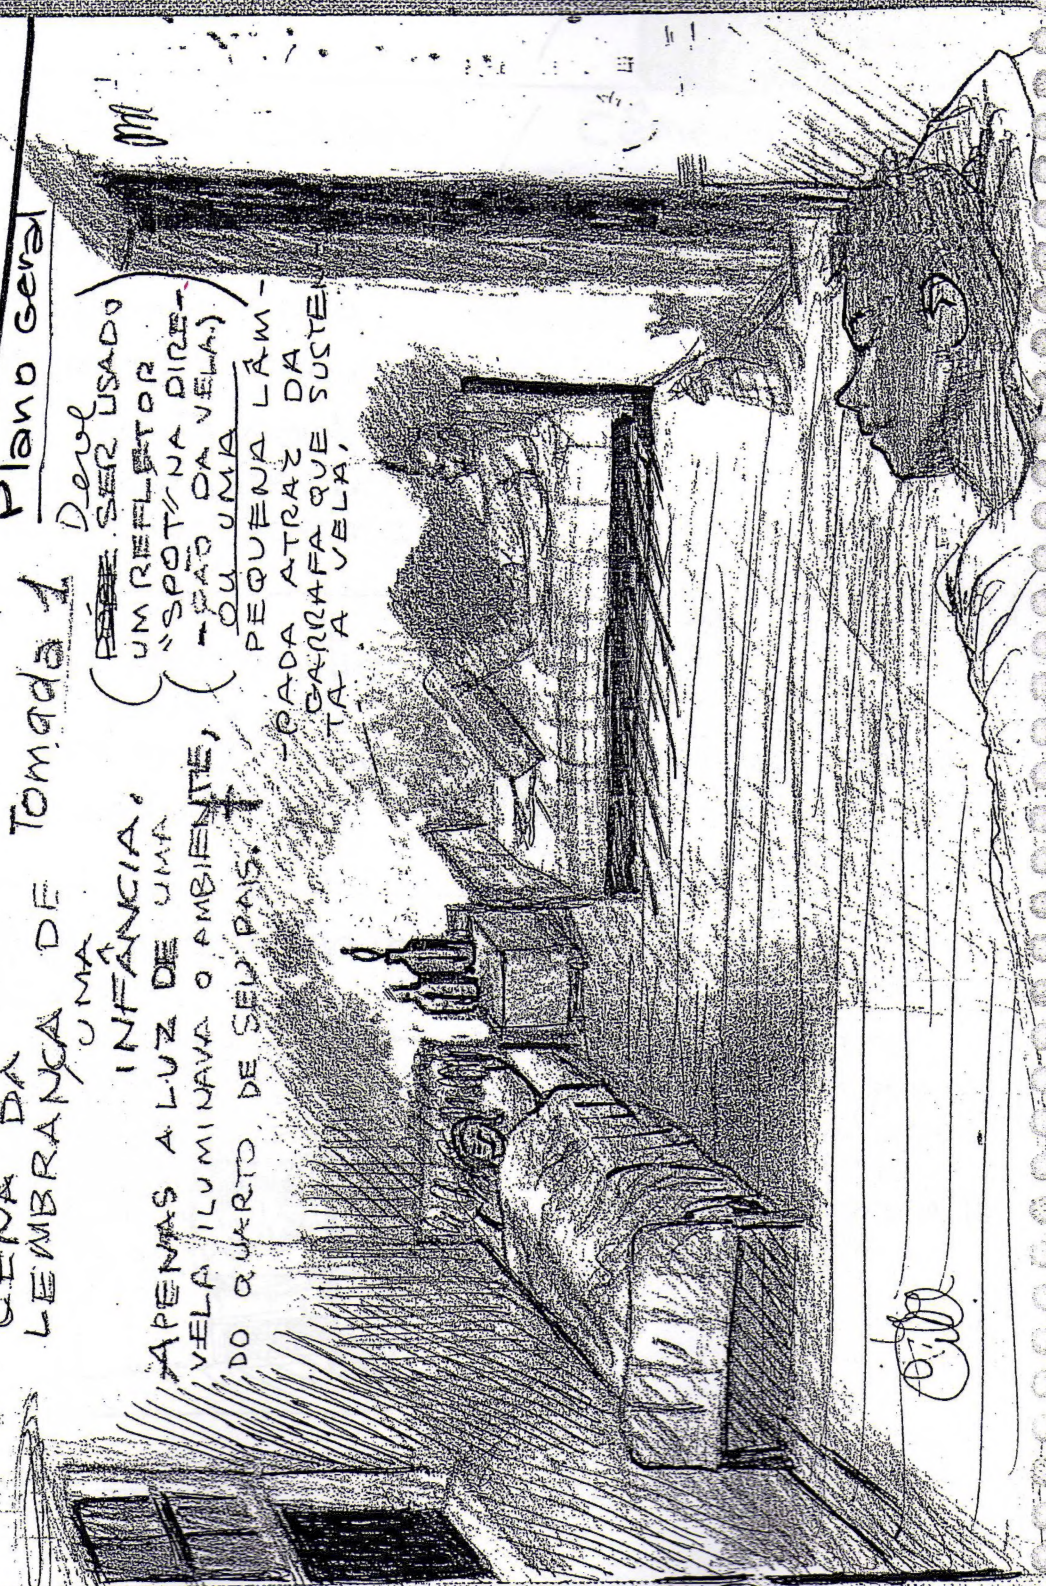 CENA DA
LEMBRANÇA DE
UMA
INFÂNCIA.
Tomada 1
Plano Geral
APENAS A LUZ DE UMA
VELA ILUMINAVA O AMBIENTE,
DO QUARTO DE SEU PAIS.
Deve
(PODE SER USADO
UM REFLETOR
"SPOT" NA DIRE-
-ÇÃO DA VELA.)
OU UMA
PEQUENA LÂM-
-PADA ATRAZ DA
GARRAFA QUE SUSTEN
TA A VELA.